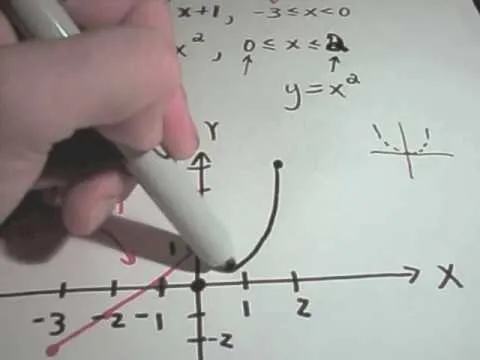 x+1, -3 ≤ x < 0
x², 0 ≤ x ≤ 2
y = x²
Y
1
X
-3 -2 -1 1 2
-2